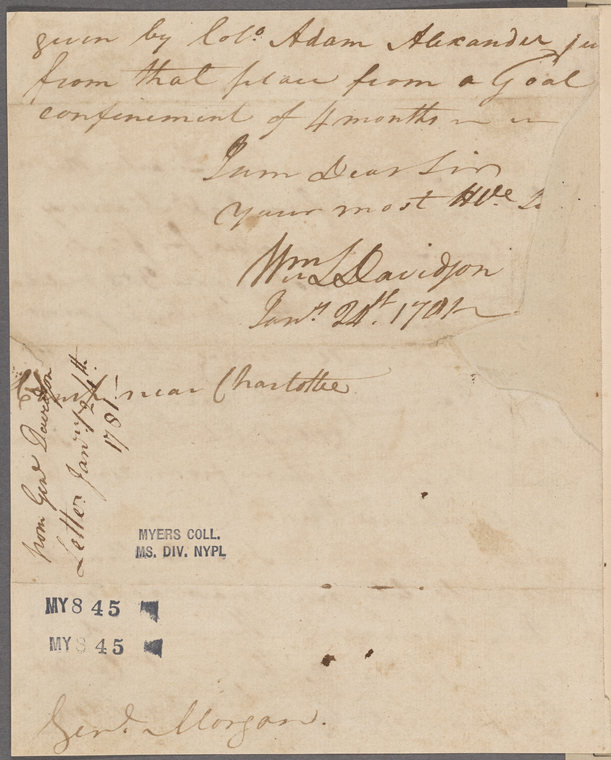 given by Colo. Adam Alexander ju
from that place from a Goal
confinement of 4 months
I am Dear Sir
Your most Hble S.
Wm L Davidson
Jany 24t. 1781
near Charlotte
from Genl Davidson
Letter Jany 24th.
1781
MYERS COLL.
MS. DIV. NYPL
MY 8 45
MY 8 45
Genl. Morgan.